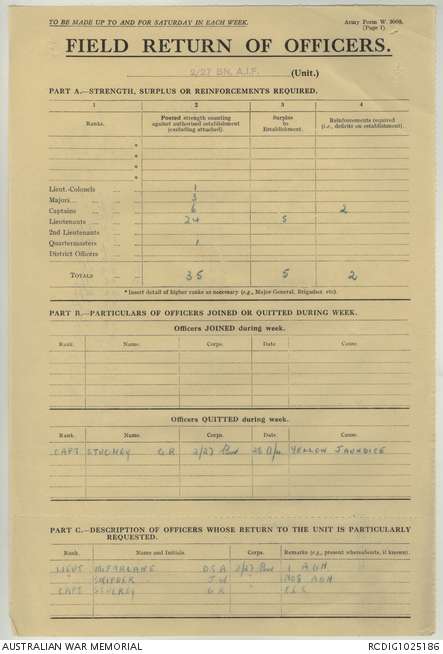 TO BE MADE UP TO AND FOR SATURDAY IN EACH WEEK.
Army Form W. 3008.
(Page 1).
FIELD RETURN OF OFFICERS.
2/27 BN. A.I.F. (Unit.)
PART A.—STRENGTH, SURPLUS OR REINFORCEMENTS REQUIRED.
1 2 3 4
Ranks. Posted strength counting against authorised establishment (excluding attached). Surplus to Establishment. Reinforcements required (i.e., deficits on establishment).
*
*
*
*
Lieut.-Colonels 1
Majors 3
Captains 6 2
Lieutenants 24 5
2nd Lieutenants
Quartermasters 1
District Officers
TOTALS 35 5 2
* Insert detail of higher ranks as necessary (e.g., Major General, Brigadier, etc.
PART B.—PARTICULARS OF OFFICERS JOINED OR QUITTED DURING WEEK.
Officers JOINED during week.
Rank. Name. Corps. Date Cause.
Officers QUITTED during week.
Rank. Name. Corps. Date Cause.
CAPT G R 2/27 28 YELLOW JAUNDICE
PART C.—DESCRIPTION OF OFFICERS WHOSE RETURN TO THE UNIT IS PARTICULARLY REQUESTED.
Rank. Name and Initials. Corps. Remarks (e.g., present whereabouts, if known).
LIEUT McFARLANE D S A 2/27 1 AGH
AGH
CAPT G R
AUSTRALIAN WAR MEMORIAL
RCDIG1025186